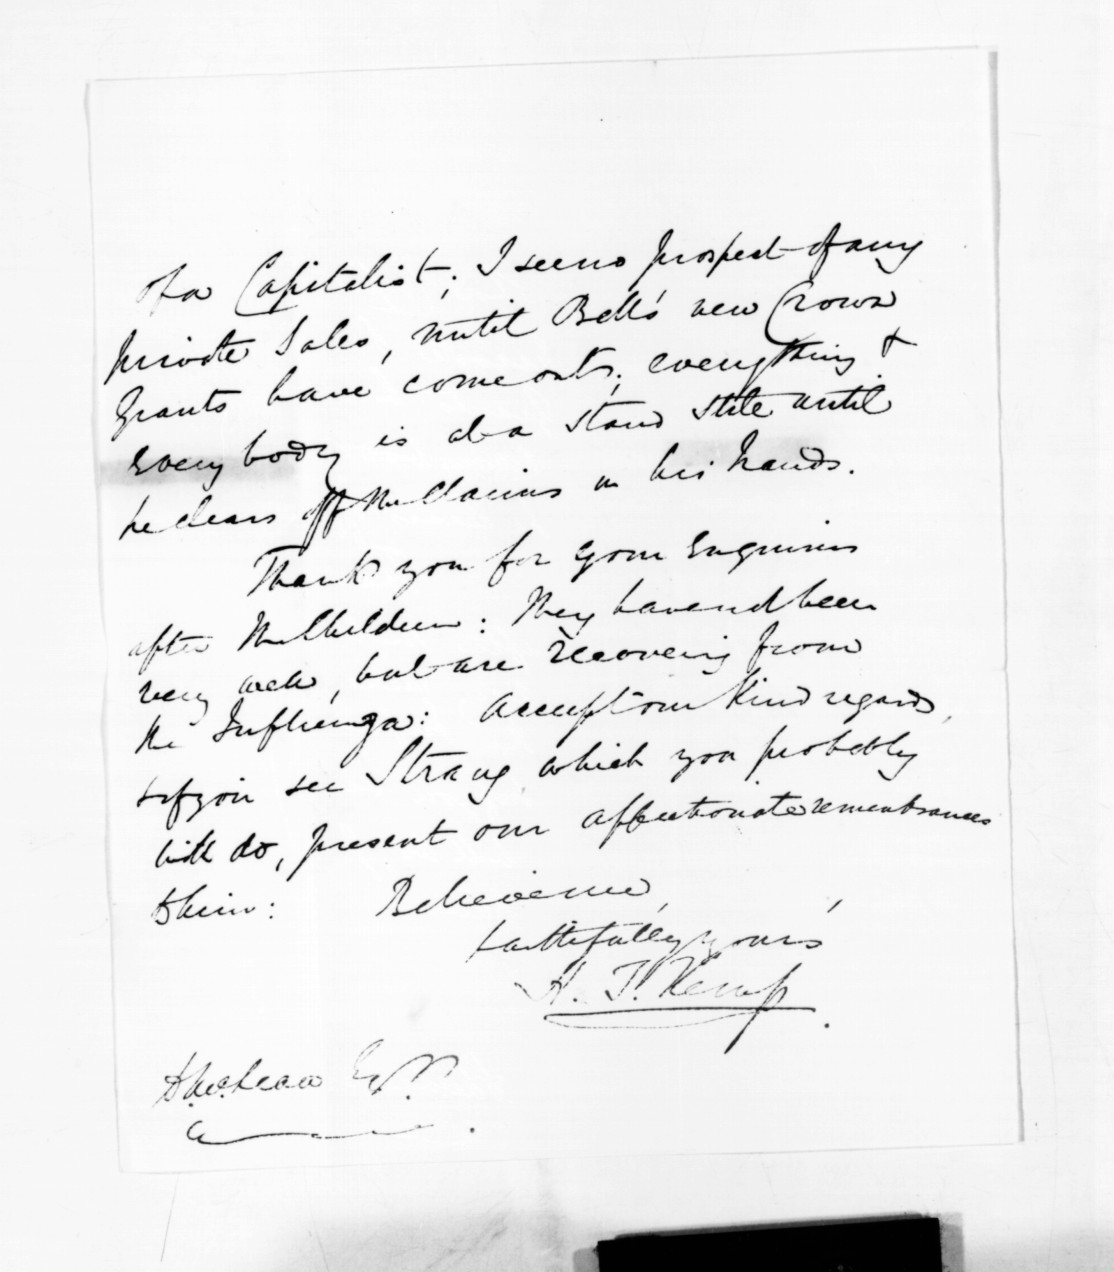 of a Capitalist; I see no prospect of any
private Sales, until Bell's new Crown
Grants have come out; everything &
every body is at a stand still until
he clears off the Claims in his hands.
Thank you for your Enquiries
after the Children: They have not been
very well, but are recovering from
the Influenza: accept our kind regards,
& if you see Strang, which you probably
will do, present our affectionate remembrances
to him: Believe me,
faithfully yours
H. T. Kemp.
D. McLean Esq.